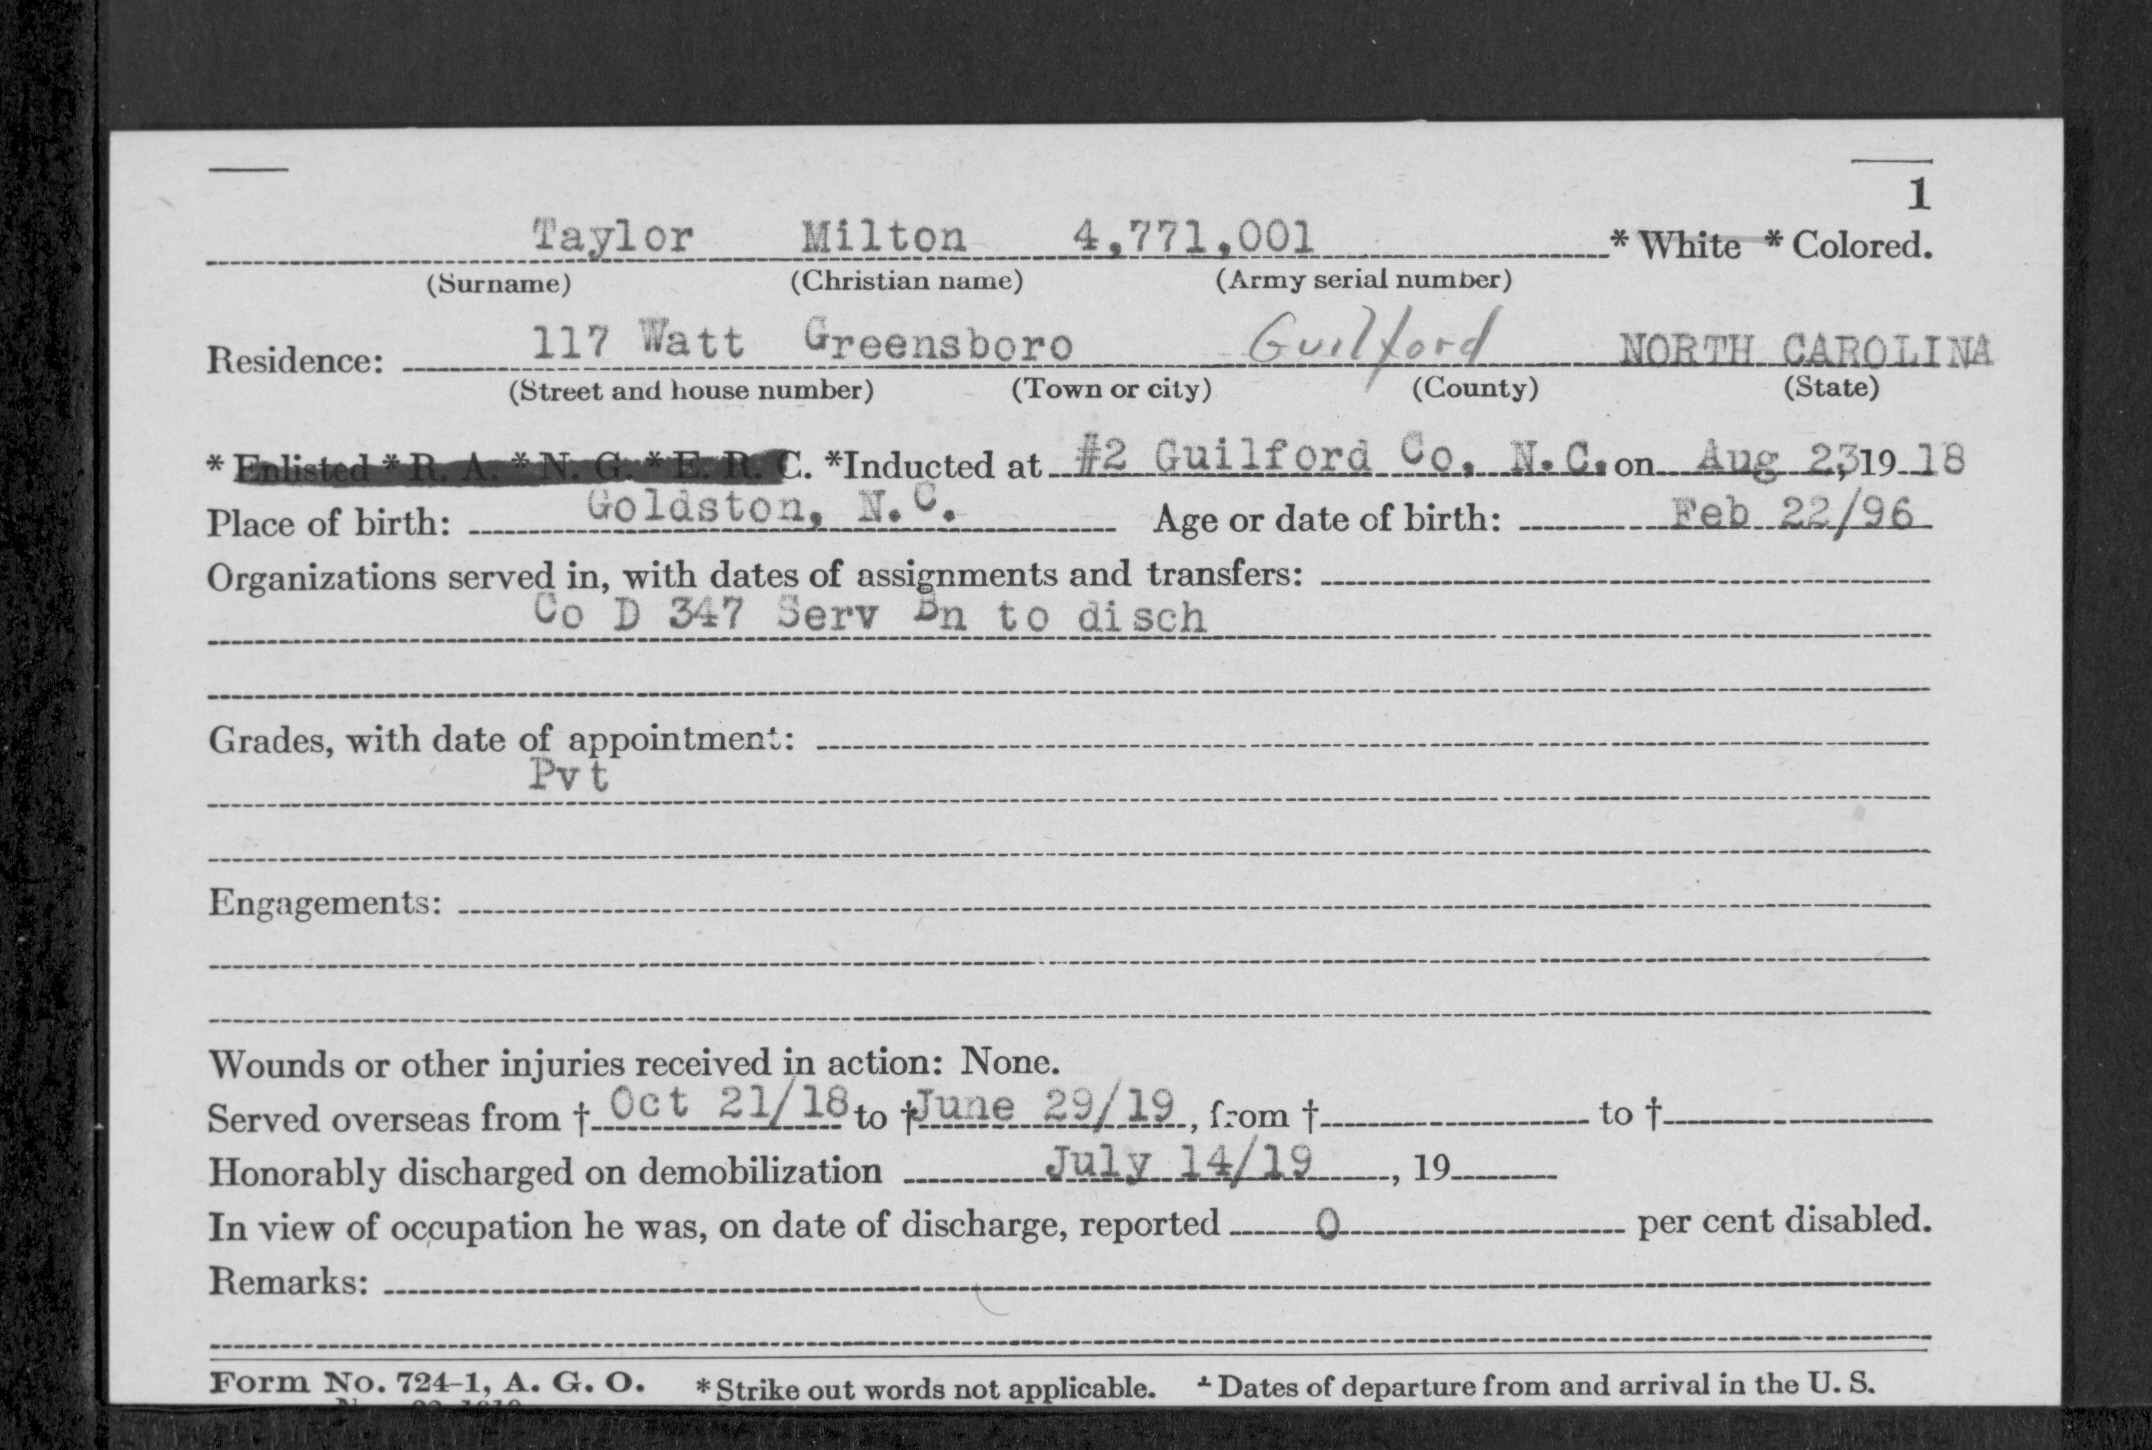 1
Taylor Milton 4,771,001 * White * Colored.
(Surname) (Christian name) (Army serial number)
Residence: 117 Watt Greensboro Guilford NORTH CAROLINA
(Street and house number) (Town or city) (County) (State)
* Enlisted * R. A. * N. G. * E. R. C. *Inducted at #2 Guilford Co, N.C. on Aug 23, 19 18
Place of birth: Goldston, N.C. Age or date of birth: Feb 22/96
Organizations served in, with dates of assignments and transfers:
Co D 347 Serv Bn to disch
Grades, with date of appointment:
Pvt
Engagements:
Wounds or other injuries received in action: None.
Served overseas from † Oct 21/18 to † June 29/19, from † to †
Honorably discharged on demobilization July 14/19, 19
In view of occupation he was, on date of discharge, reported 0 per cent disabled.
Remarks:
Form No. 724-1, A. G. O. * Strike out words not applicable. † Dates of departure from and arrival in the U. S.